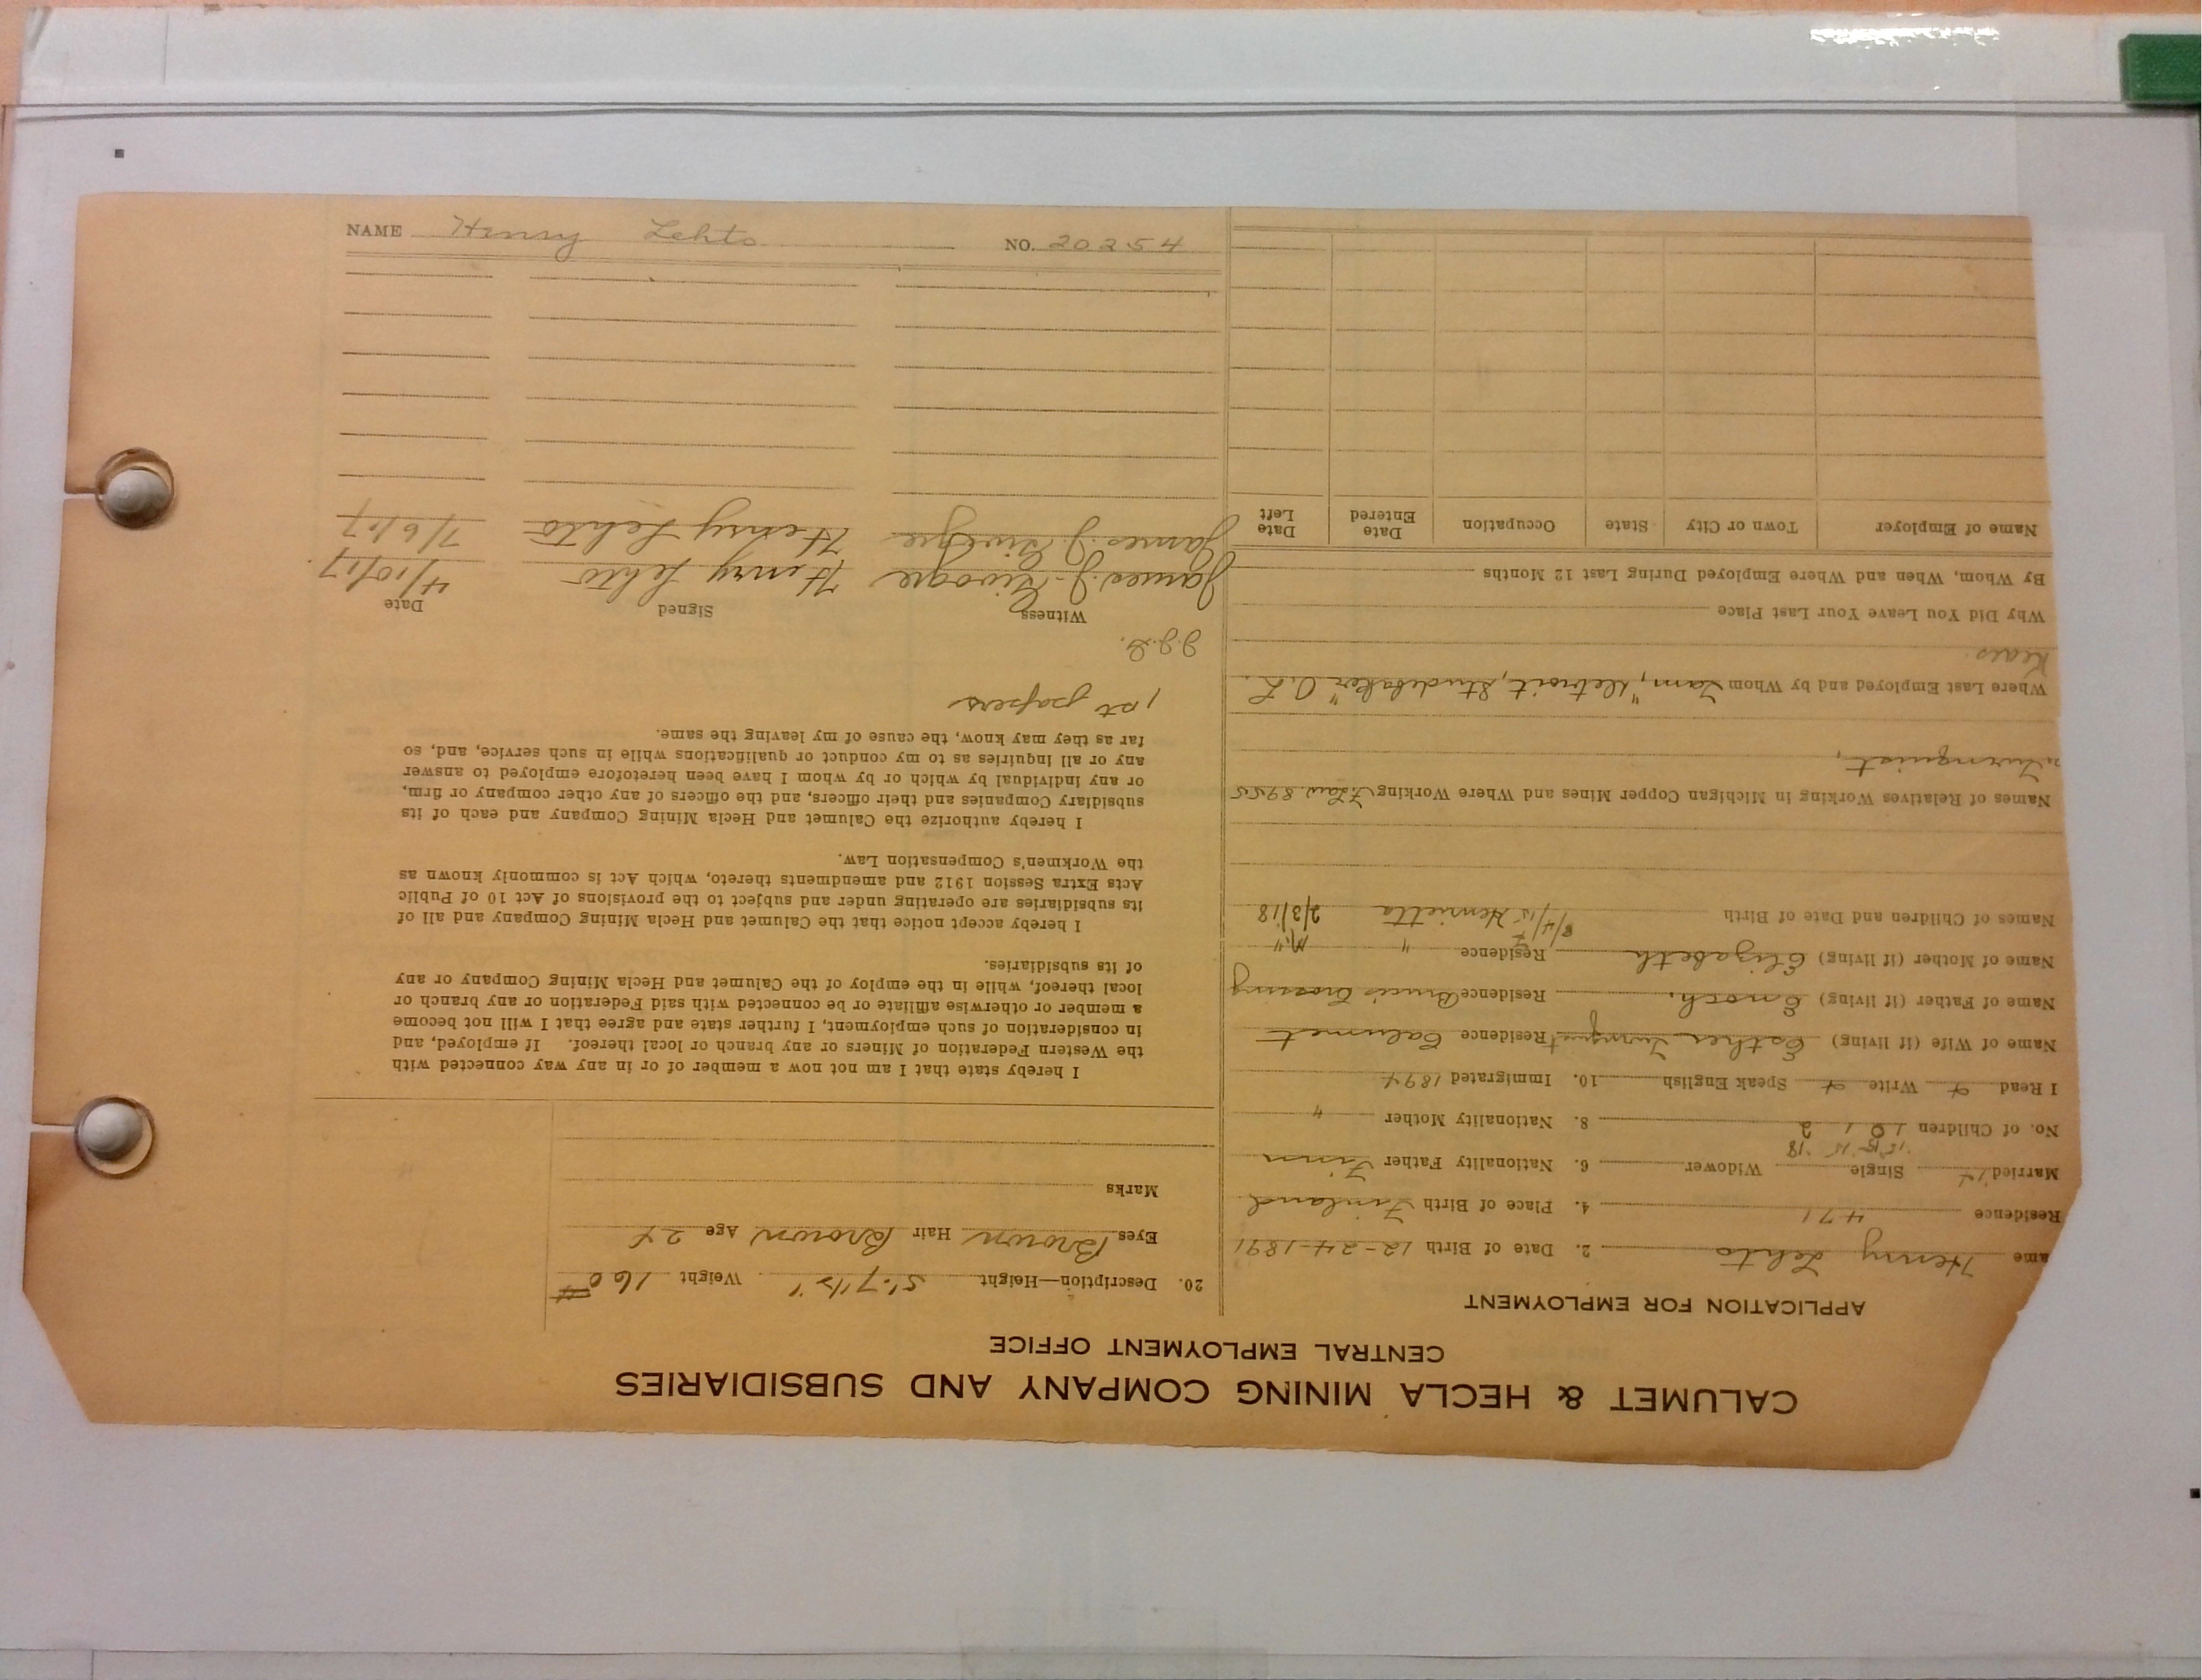 CALUMET & HECLA MINING COMPANY AND SUBSIDIARIES
CENTRAL EMPLOYMENT OFFICE
APPLICATION FOR EMPLOYMENT
ame Henry Lehto 2. Date of Birth 12-24-1891
Residence 471 4. Place of Birth Finland
Married Single Widower 6. Nationality Father Finn
'15 '18
No. of Children 1 0 1 2 8. Nationality Mother "
I Read Write Speak English 10. Immigrated 1894
Name of Wife (if living) Esther Turnquist Residence Calumet
Name of Father (if living) Enoch. Residence Bruces Crossing
Name of Mother (if living) Elizabeth Residence " Mi"
Names of Children and Date of Birth Henrietta 2/3/18
Names of Relatives Working in Michigan Copper Mines and Where Working 8955
Turnquist,
Where Last Employed and by Whom "Detroit, Studebaker"
Why Did You Leave Your Last Place
By Whom, When and Where Employed During Last 12 Months
Name of Employer Town or City State Occupation Date Entered Date Left
20. Description—Height 5'-7 1/2" Weight 160 #
Eyes Brown Hair Brown Age
Marks
I hereby state that I am not now a member of or in any way connected with
the Western Federation of Miners or any branch or local thereof. If employed, and
in consideration of such employment, I further state and agree that I will not become
a member or otherwise affiliate or be connected with said Federation or any branch or
local thereof, while in the employ of the Calumet and Hecla Mining Company or any
of its subsidiaries.
I hereby accept notice that the Calumet and Hecla Mining Company and all of
its subsidiaries are operating under and subject to the provisions of Act 10 of Public
Acts Extra Session 1912 and amendments thereto, which Act is commonly known as
the Workmen's Compensation Law.
I hereby authorize the Calumet and Hecla Mining Company and each of its
subsidiary Companies and their officers, and the officers of any other company or firm,
or any individual by which or by whom I have been heretofore employed to answer
any or all inquiries as to my conduct or qualifications while in such service, and, so
far as they may know, the cause of my leaving the same.
1st papers
J.J.G.
Witness Signed Date
James J. Henry Lehto 4/10/17
James J. Henry Lehto 7/6/17
NAME Henry Lehto NO. 20254